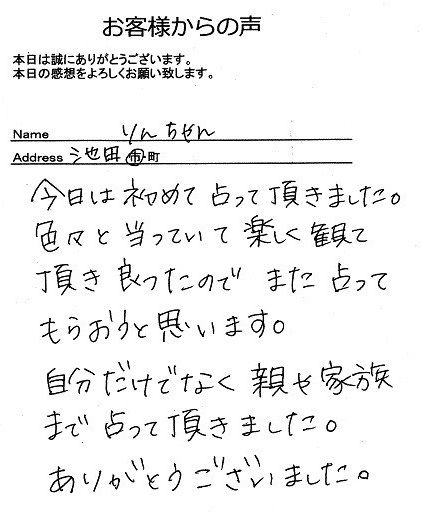 お客様からの声
本日は誠にありがとうございます。
本日の感想をよろしくお願い致します。
Name りんちゃん
Address 池田市・町
今日は初めて占って頂きました。
色々と当っていて楽しく観て
頂き良ったので また占って
もらおうと思います。
自分だけでなく親や家族
まで占って頂きました。
ありがとうございました。